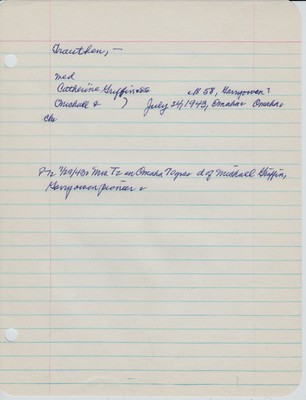 Trauthen, —
med
Catherine Griffin
cH 58, Garryowen?
Michael &
)
July 24, 1943, Omaha
Omaha
Ch
7/30/43: Mrs T
in Omaha
d of Michael Griffin,
Garryowen pioneer